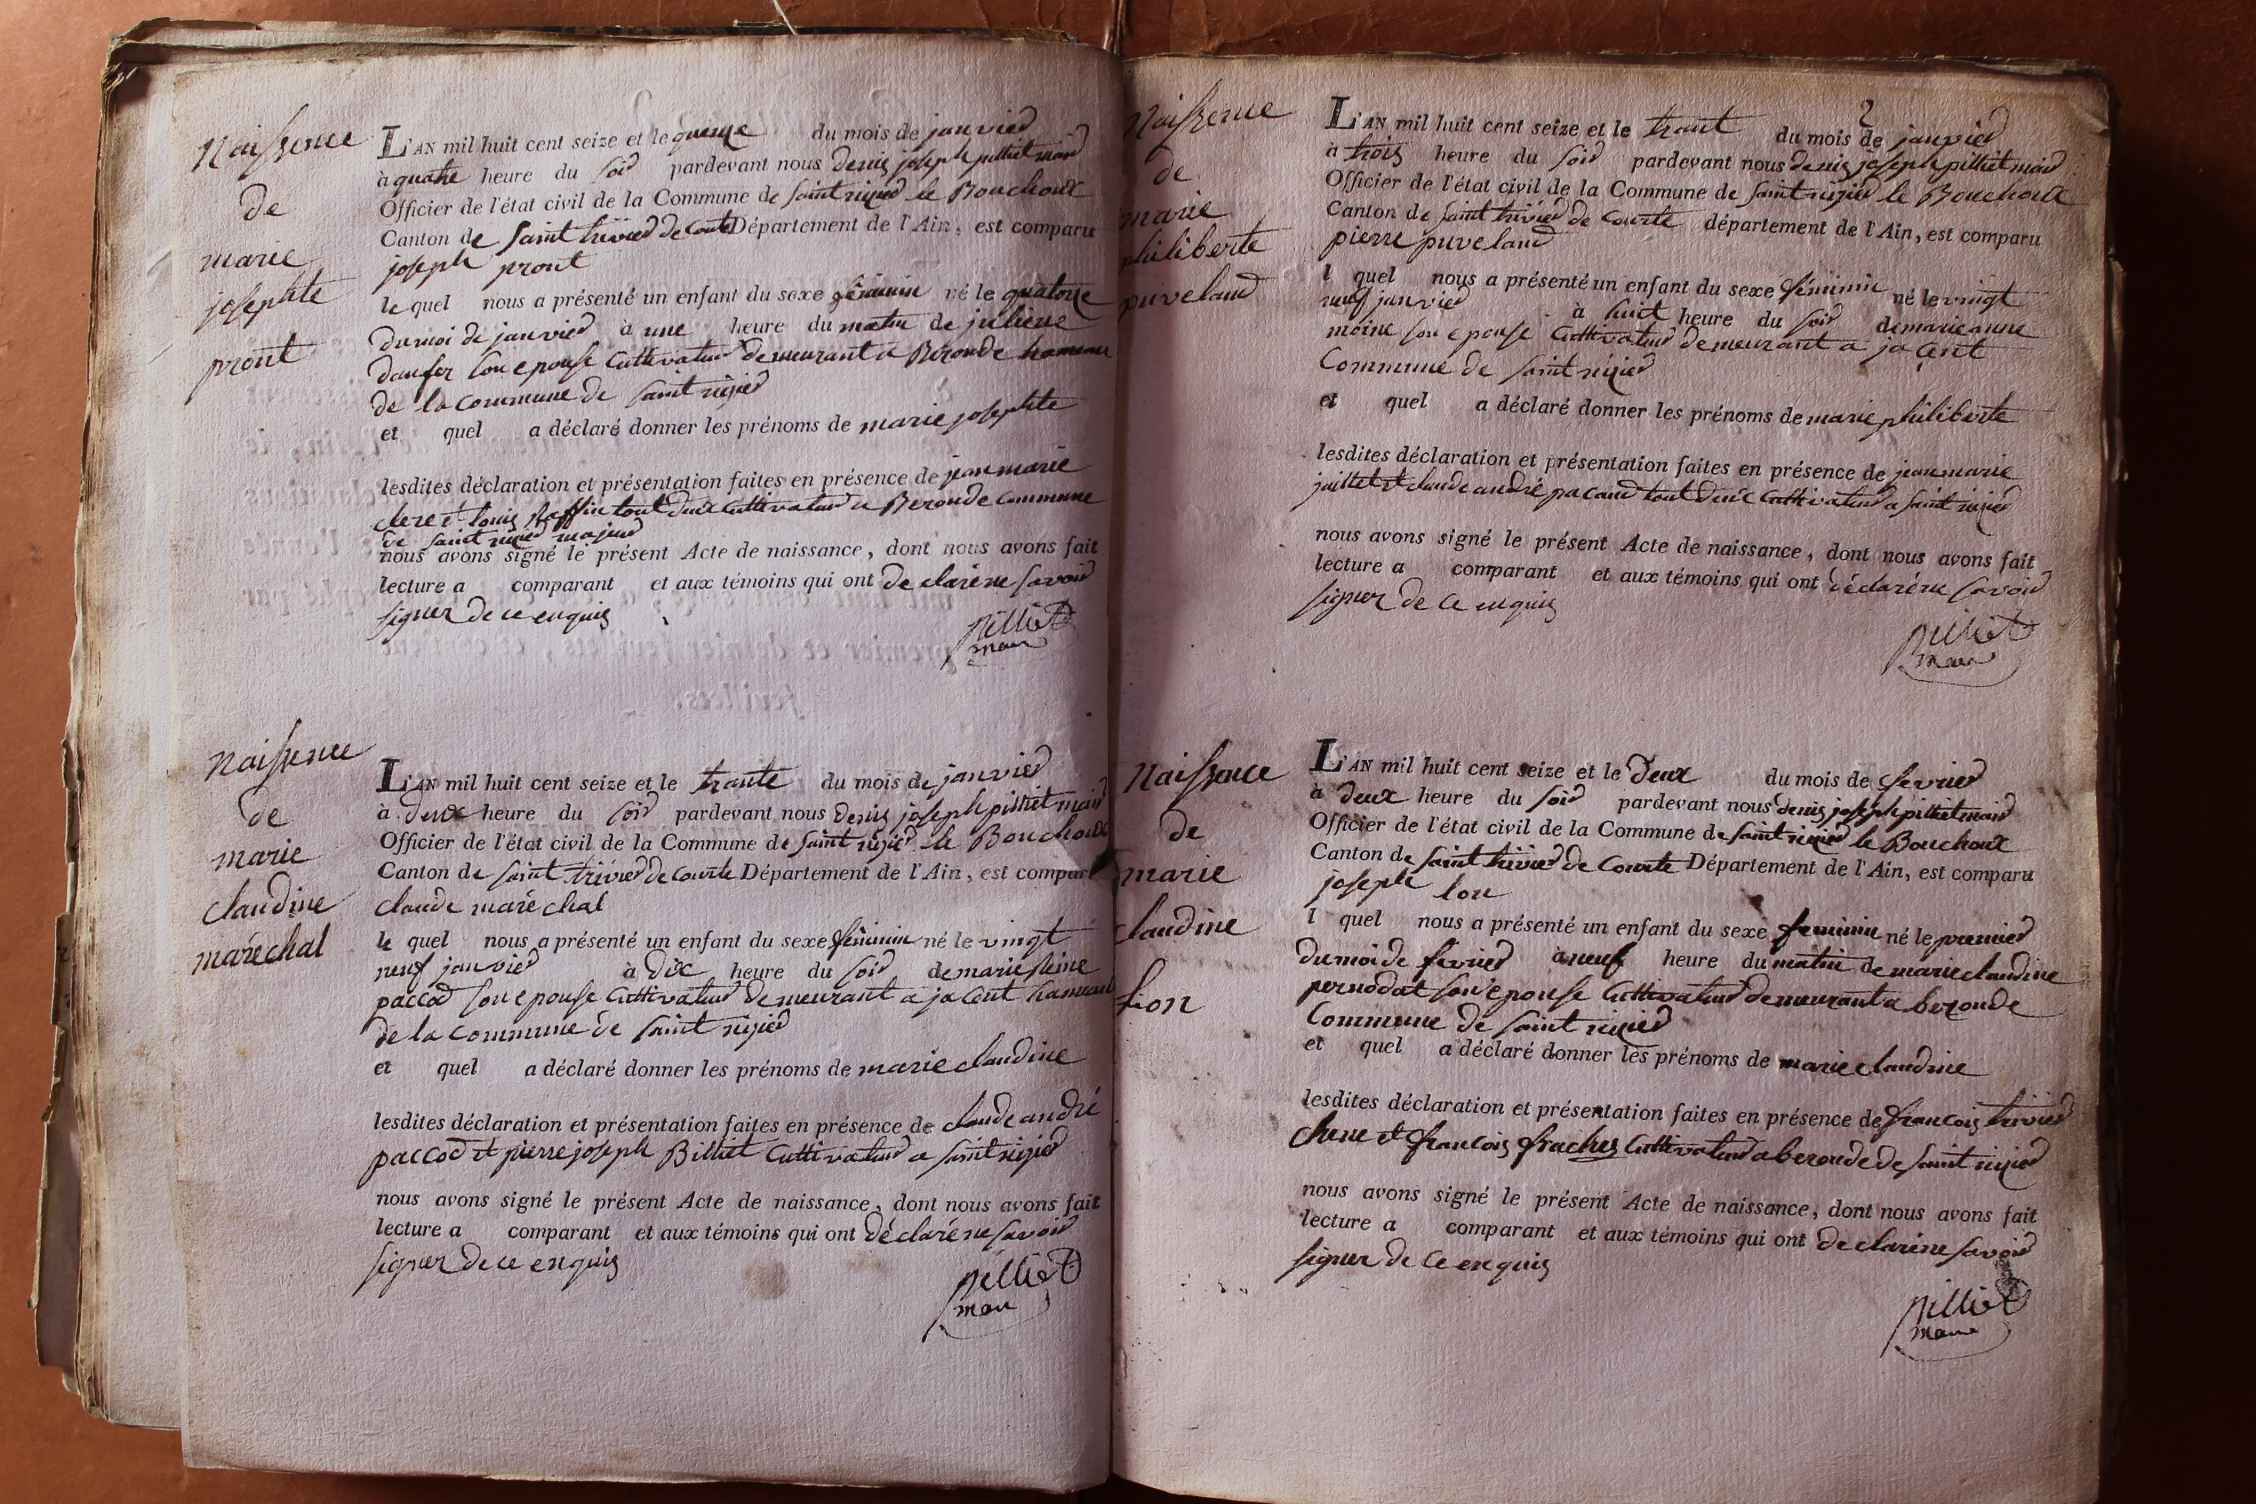 Naissence
de
marie
josephte
pront
L'AN mil huit cent seize et le quenze du mois de janvier
à quatre heure du soir pardevant nous denis joseph pilliet maire
Officier de l'état civil de la Commune de saint nizier le Bouchoux
Canton de saint trivier de courte Département de l'Ain, est comparu
joseph pront
le quel nous a présenté un enfant du sexe féminin né le quatorze
du moi de janvier à une heure du matin de juliene
daufer son epouse Cultivateur demeurant a Béronde hameau
de la commune de saint nizier
et quel a déclaré donner les prénoms de marie josephte
lesdites déclaration et présentation faites en présence de jean marie
clere et louis Raffin tout deux Cultivateur a Beronde commune
de saint nizier majeur
nous avons signé le présent Acte de naissance, dont nous avons fait
lecture a comparant et aux témoins qui ont de claré ne savoir
signer de ce enquis
pilliet
maire
Naissence
de
marie
claudine
maréchal
L'AN mil huit cent seize et le trante du mois de janvier
à deux heure du soir pardevant nous denis joseph pilliet maire
Officier de l'état civil de la Commune de saint nizier le Bouchoux
Canton de saint trivier de courte Département de l'Ain, est comparu
claude maréchal
le quel nous a présenté un enfant du sexe féminin né le vingt
neuf janvier à dix heure du soir de marie Reine
paccod son epouse Cultivateur demeurant a jacent hameau
de la commune de saint nizier
et quel a déclaré donner les prénoms de marie claudine
lesdites déclaration et présentation faites en présence de claude andré
paccod et pierre joseph Billiet Cultivateur a saint nizier
nous avons signé le présent Acte de naissance, dont nous avons fait
lecture a comparant et aux témoins qui ont déclaré ne savoir
signer de ce enquis
pilliet
maire
2
Naissence
de
marie
philiberte
puveland
L'AN mil huit cent seize et le trant du mois de janvier
à trois heure du soir pardevant nous denis joseph pilliet maire
Officier de l'état civil de la Commune de saint nizier le Bouchoux
Canton de saint trivier de Courte département de l'Ain, est comparu
pierre puveland
l quel nous a présenté un enfant du sexe féminin né le vingt
neuf janvier à huit heure du soir de marie anne
moine son epouse Cultivateur demeurant a jacent
Commune de saint nizier
et quel a déclaré donner les prénoms de marie philiberte
lesdites déclaration et présentation faites en présence de jean marie
juillet et claude andré pacaud tout deux Cultivateur a saint nizier
nous avons signé le présent Acte de naissance, dont nous avons fait
lecture a comparant et aux témoins qui ont déclaré ne savoir
signer de ce enquis
pilliet
maire
Naissence
de
marie
claudine
Lon
L'AN mil huit cent seize et le deux du mois de fevrier
à deux heure du soir pardevant nous denis joseph pilliet maire
Officier de l'état civil de la Commune de saint nizier le Bouchoux
Canton de saint trivier de Courte Département de l'Ain, est comparu
joseph lon
l quel nous a présenté un enfant du sexe feminin né le premier
du moi de fevrier à neuf heure du matin de marie claudine
pernodat son epouse Cultivateur demeurant a beronde
Commune de saint nizier
et quel a déclaré donner les prénoms de marie claudine
lesdites déclaration et présentation faites en présence de francois trivier
chene et francois fraches Cultivateur a beronde de saint nizier
nous avons signé le présent Acte de naissance, dont nous avons fait
lecture a comparant et aux témoins qui ont de claré ne savoir
signer de Ce enquis
pilliet
maire